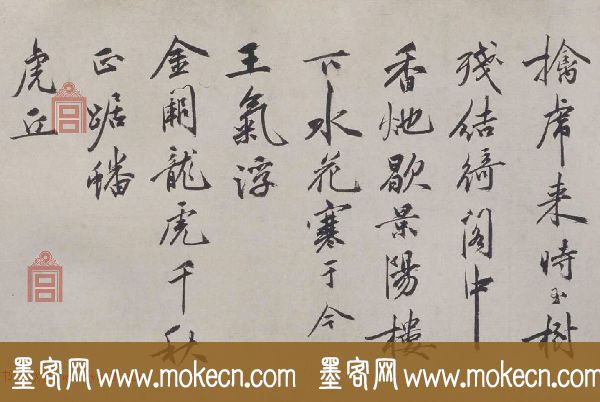 擒虎来時玉樹
殘結綺閣中
香地歇景陽樓
下水花寒于今
王氣浮
金闕龍虎千秋
正踞蟠
虎丘
墨客网 www.mokecn.com 墨客网 www.mokecn.com